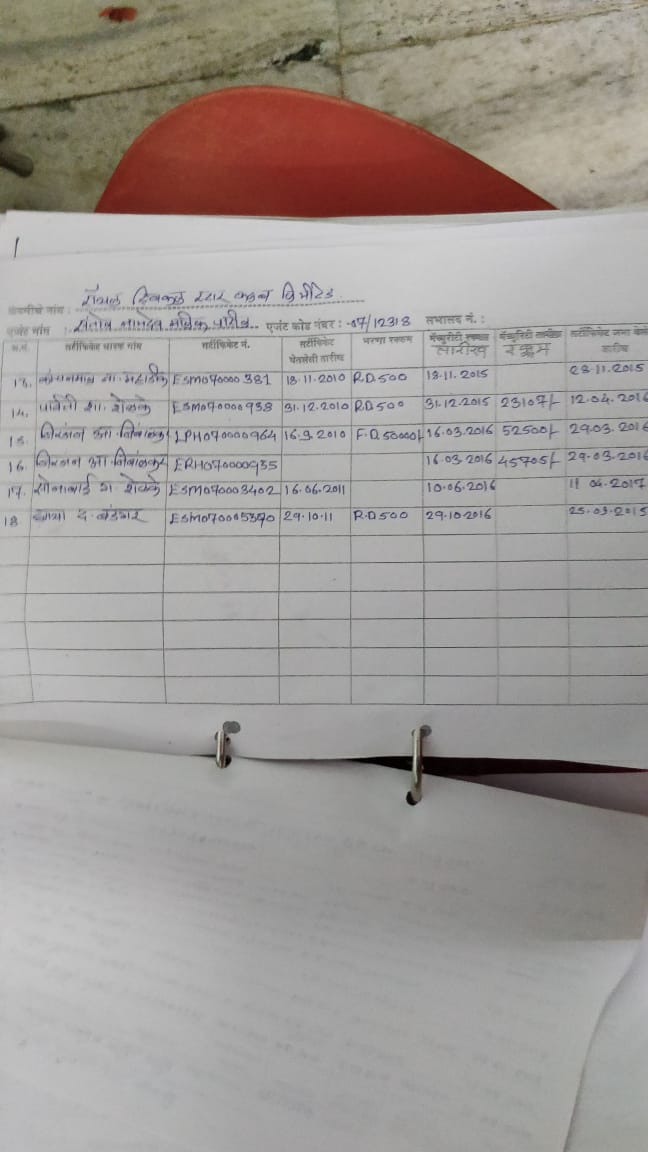 कंपनीचे नांव : रॉयल ट्विंकल स्टार क्लब लिमिटेड
एजंट नांव : संतोष नामदेव एजंट कोड नंबर : 07/12318 सभासद नं. :
अ.नं. सर्टीफिकेट धारक नांव सर्टीफिकेट नं. सर्टीफिकेट घेतलेली तारीख भरणा रक्कम मॅच्युरीटी तारीख मॅच्युरिटी रक्कम सर्टीफिकेट जमा केलेली तारीख
13. ESM070000381 18.11.2010 R.D.500 18.11.2015 28.11.2015
14. पार्वती शा. शेळके ESM070000938 31.12.2010 R.D.500 31.12.2015 23107/- 12.04.2016
15. निरंजन आ. निंबाळकर LPH070000964 16.9.2010 F.D.50000/- 16.03.2016 52500/- 29.03.2016
16. निरंजन आ. निंबाळकर ERH070000935 16.03.2016 45705/- 29.03.2016
17. सोनाबाई श. शेळके ESM070003402 16.06.2011 10.06.2016 11.04.2017
18 छाया द. ESM070005390 29.10.11 R.D.500 29.10.2016 25.03.2015